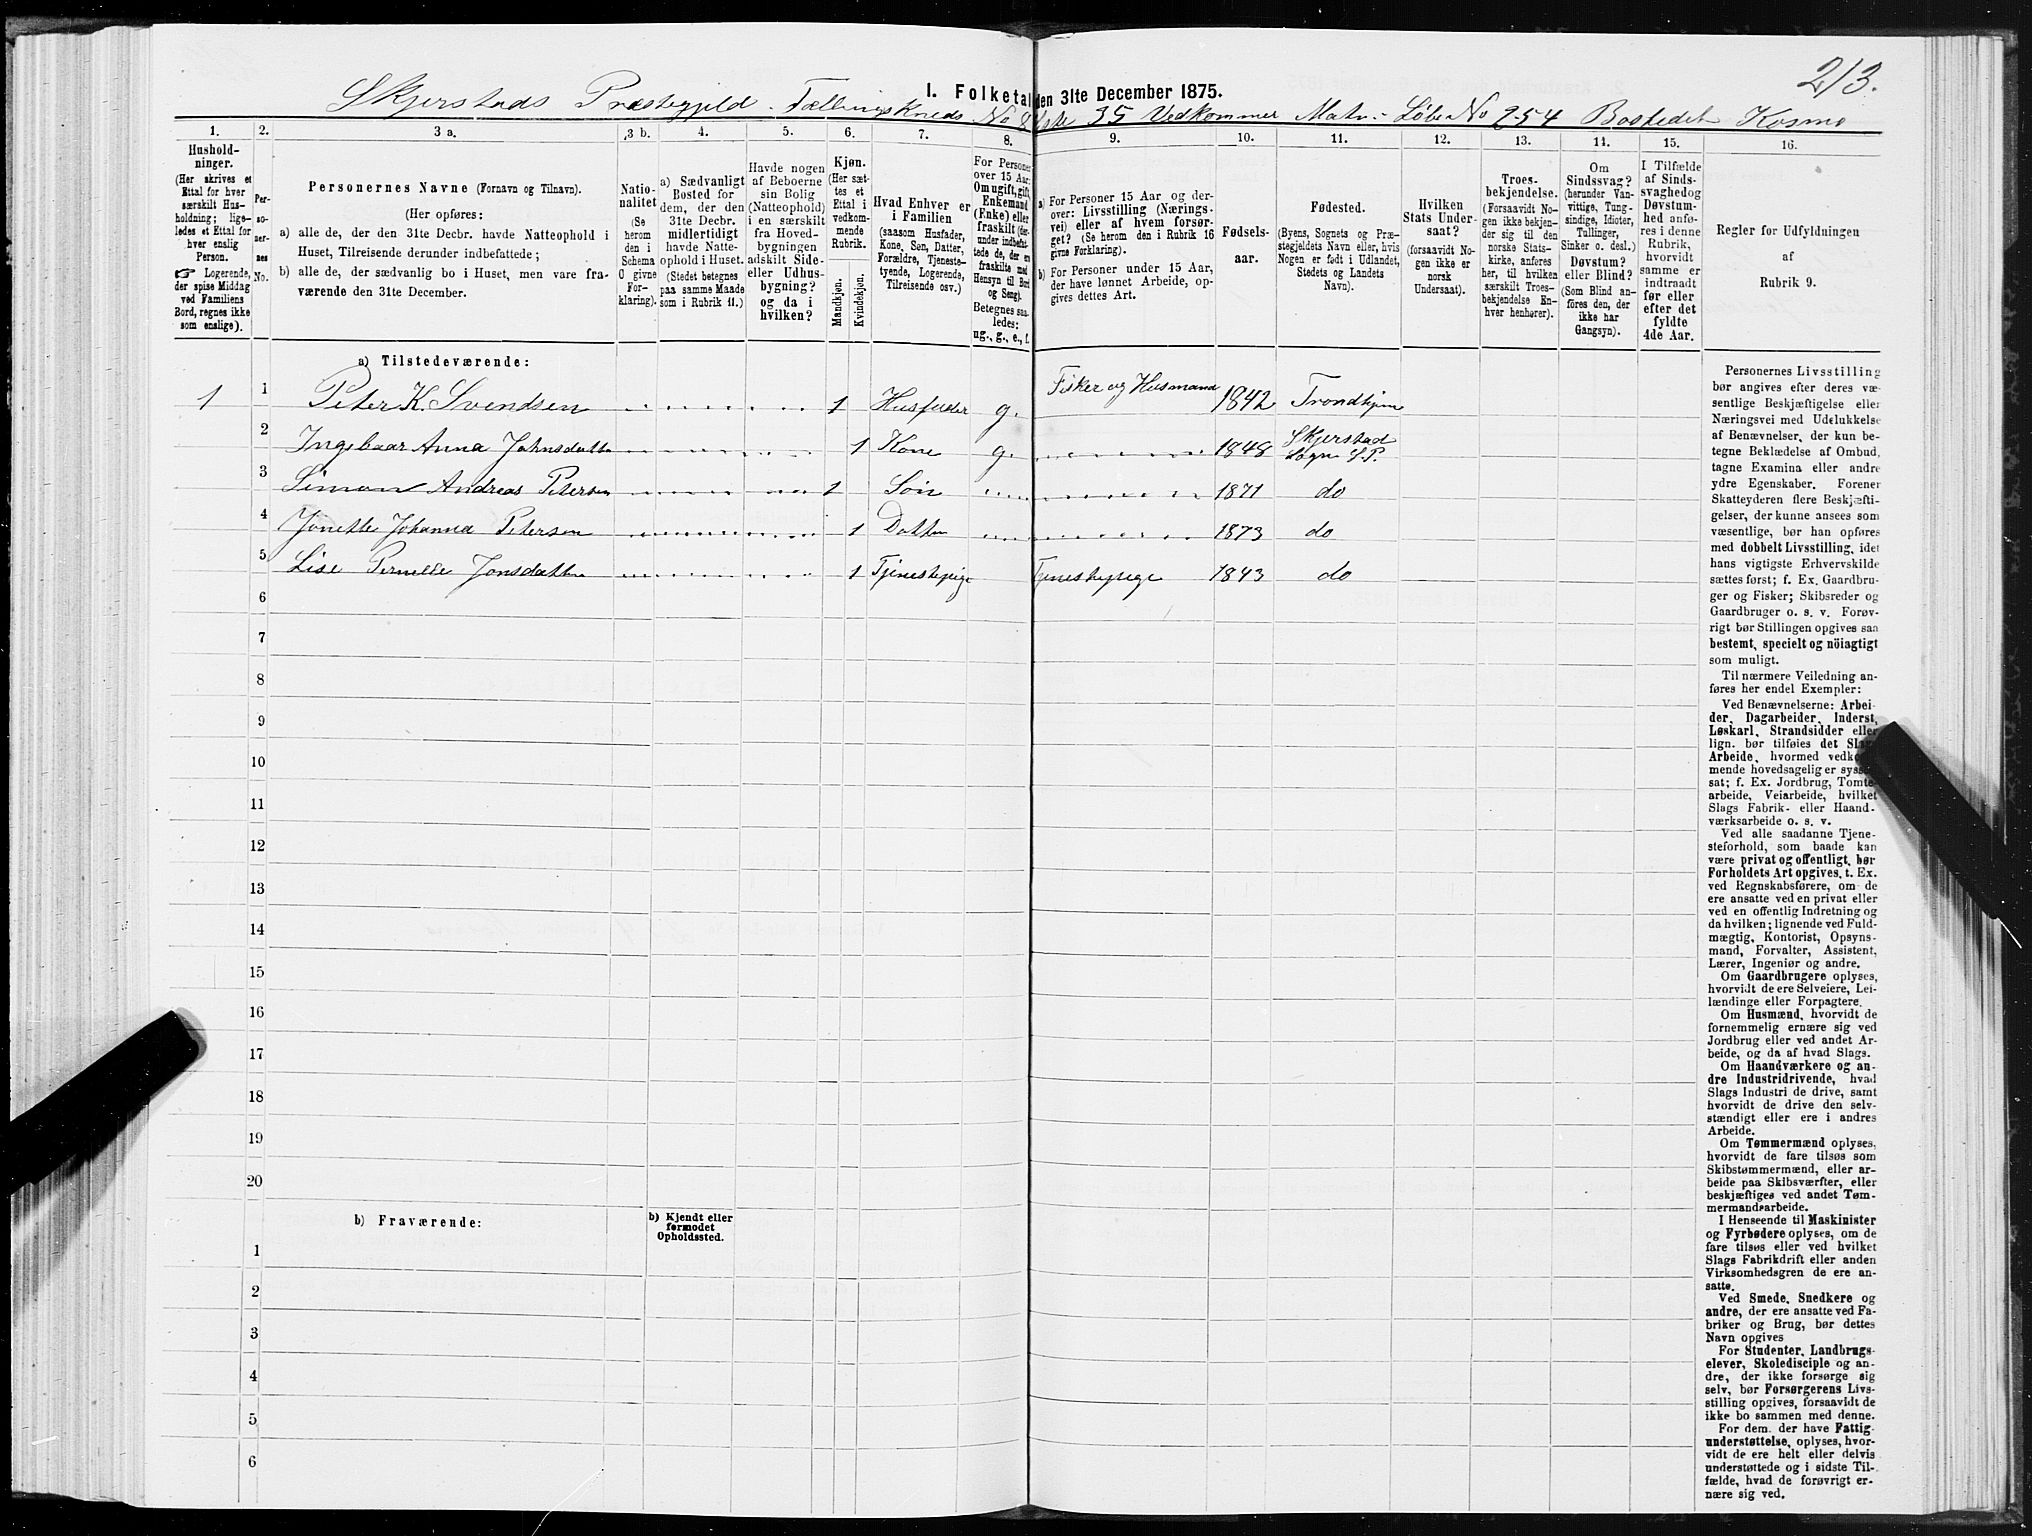 213.
I. Folketal den 31te December 1875.
Skjerstads Præstegjeld. Tællingskreds No 8 Liste 35 Vedkommer Matr.- Løbe No 254 Bostedet Kosmo
1. 2. 3 a. 3 b. 4. 5. 6. 7. 8. 9. 10. 11. 12. 13. 14. 15. 16.
Hushold-
ninger.
(Her skrives et
Ettal for hver
særskilt Hus-
holdning; lige-
ledes et Ettal for
hver enslig
Person.
☞ Logerende,
der spise Middag
ved Familiens
Bord, regnes ikke
som enslige).
Per-
so-
ner-
nes
No.
Personernes Navne (Fornavn og Tilnavn).
(Her opføres:
a) alle de, der den 31te Decbr. havde Natteophold i
Huset, Tilreisende derunder indbefattede;
b) alle de, der sædvanlig bo i Huset, men vare fra-
værende den 31te December.
Natio-
nalitet
(Se
herom
den i
Schema
O givne
For-
klaring).
a) Sædvanligt
Bosted for
dem, der den
31te Decbr.
midlertidigt
havde Natte-
ophold i Huset.
(Stedet betegnes
paa samme Maade
som i Rubrik 11.)
Havde nogen
af Beboerne
sin Bolig
(Natteophold)
i en særskilt
fra Hoved-
bygningen
adskilt Side-
eller Udhus-
bygning?
og da i
hvilken?
Kjøn.
(Her sæt-
tes et
Ettal i
vedkom-
mende
Rubrik.
Mandkjøn.
Kvindekjøn.
Hvad Enhver er
i Familien
(saasom Husfader,
Kone, Søn, Datter,
Forældre, Tjeneste-
tyende, Logerende,
Tilreisende osv.)
For Personer
over 15 Aar:
Om ugift, gift,
Enkemand
(Enke) eller
fraskilt (der-
under indbefat-
tede de, der ere
fraskilte med
Hensyn til Bord
og Seng).
Betegnes saa-
ledes:
ug., g., e., f.
a) For Personer 15 Aar og der-
over: Livsstilling (Nærings-
vei) eller af hvem forsør-
get? (Se herom den i Rubrik 16
givne Forklaring).
b) For Personer under 15 Aar,
der have lønnet Arbeide, op-
gives dettes Art.
Fødsels-
aar.
Fødested.
(Byens, Sognets og Præ-
stegjeldets Navn eller, hvis
Nogen er født i Udlandet,
Stedets og Landets
Navn).
Hvilken
Stats Under-
saat?
(forsaavidt No-
gen ikke er
norsk
Undersaat).
Troes-
bekjendelse.
(Forsaavidt No-
gen ikke bekjen-
der sig til den
norske Stats-
kirke, anføres
her, til hvilken
særskilt Troes-
bekjendelse En-
hver henhører).
Om
Sindssvag?
(herunder Van-
vittige, Tung-
sindige, Idioter,
Tullinger,
Sinker o. desl.)
Døvstum?
eller Blind?
(Som Blind an-
føres den, der
ikke har
Gangsyn).
I Tilfælde
af Sinds-
svaghed og
Døvstum-
hed anfø-
res i denne
Rubrik,
hvorvidt
samme er
indtraadt
før eller
efter det
fyldte
4de Aar.
Regler for Udfyldningen
af
Rubrik 9.
a) Tilstedeværende:
1 1 Peter K. Svendsen 1 Husfader g. Fisker og Husmand 1842 Trondhjem
2 Ingebaar Anna Johnsdatter 1 Kone g. 1848 Skjerstad Sogn S. P.
3 Simon Andreas Petersen 1 Søn 1871 do
4 Jonette Johanna Petersen 1 Datter 1873 do
5 Lise Pernelle Jonsdatter 1 Tjenestepige Tjenestepige 1843 do
6
7
8
9
10
11
12
13
14
15
16
17
18
19
20
b) Fraværende:
b) Kjendt eller
formodet
Opholdssted.
1
2
3
4
5
6
Personernes Livsstilling
bør angives efter deres væ-
sentlige Beskjæftigelse eller
Næringsvei med Udelukkelse
af Benævnelser, der kun be-
tegne Beklædelse af Ombud,
tagne Examina eller andre
ydre Egenskaber. Forener
Skatteyderen flere Beskjæfti-
gelser, der kunne ansees som
væsentlige, bør han opføres
med dobbelt Livsstilling, idet
hans vigtigste Erhvervskilde
sættes først; f. Ex. Gaardbru-
ger og Fisker; Skibsreder og
Gaardbruger o. s. v. Forøv-
rigt bør Stillingen opgives saa
bestemt, specielt og nöiagtigt
som muligt.
Til nærmere Veiledning an-
føres her endel Exempler:
Ved Benævnelserne: Arbei-
der, Dagarbeider, Inderst,
Løskarl, Strandsidder eller
lign. bør tilføies det Slags
Arbeide, hvormed vedkom-
mende hovedsagelig er syssel-
sat; f. Ex. Jordbrug, Tomte-
arbeide, Veiarbeide, hvilket
Slags Fabrik- eller Haand-
værksarbeide o. s. v.
Ved alle saadanne Tjene-
steforhold, som baade kan
være privat og offentligt, bør
Forholdets Art opgives. t. Ex.
ved Regnskabsførere, om de
ere ansatte ved en privat eller
ved en offentlig Indretning og
da hvilken; lignende ved Fuld-
mægtig, Kontorist, Opsyns-
mand, Forvalter, Assistent,
Lærer, Ingeniør og andre.
Om Gaardbrugere oplyses,
hvorvidt de ere Selveiere, Lei-
lændinge eller Forpagtere.
Om Husmænd, hvorvidt de
fornemmelig ernære sig ved
Jordbrug eller ved andet Ar-
beide, og da af hvad Slags.
Om Haandværkere og an-
dre Industridrivende, hvad
Slags Industri de drive, samt
hvorvidt de drive den selv-
stændigt eller ere i andres
Arbeide.
Om Tømmermænd oplyses,
hvorvidt de fare tilsøs som
Skibstømmermænd, eller ar-
beide paa Skibsværfter, eller
beskjæftiges ved andet Tøm-
mermandsarbeide.
I Henseende til Maskinister
og Fyrbødere oplyses, om de
fare tilsøs eller ved hvilket
Slags Fabrikdrift eller anden
Virksomhedsgren de ere an-
satte.
Ved Smede, Snedkere og
andre, der ere ansatte ved Fa-
briker og Brug, bør dettes
Navn opgives
For Studenter, Landbrugs-
elever, Skoledisciple og an-
dre, der ikke forsørge sig
selv, bør Forsørgerens Livs-
stilling opgives, forsaavidt de
ikke bo sammen med denne.
For dem, der have Fattig-
understøttelse, oplyses, hvor-
vidt de ere helt eller delvis
understøttede og i sidste Til-
fælde, hvad de forøvrigt er-
nære sig ved.